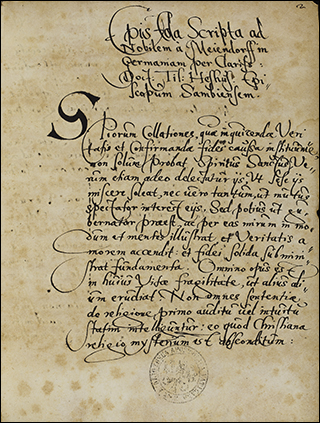 2
Epistola Scripta ad
Nobilem à Meiendorff in
Germaniam per Clariss:
Doct: Til: Heshus: Epi-
scopum Sambiensem.
Piorum Collationes, quæ inquirendæ Veri-
tatis et Confirmandæ fidei caussa instituuntur
non solum Probat Spiritus Sanctus, Ve-
rum etiam adeo delectatur ijs, Vt sese ijs
miscere soleat, nec vero tantum, ut mutus
spectator interest eis. Sed potius ut gu-
bernator præest, ac per eas mirum in mo-
dum et mentes illustrat, et Veritatis a-
morem accendit: et fidei solida submini-
strat fundamenta. Omnino opus est
in huius Vitæ fragilitate, ut alius ali-
um erudiat. Non omnes sententiæ
de religione, primo auditu vel intuitu
statim intelliguntur: eo quod Christiana
religio mysterium et absconditum: